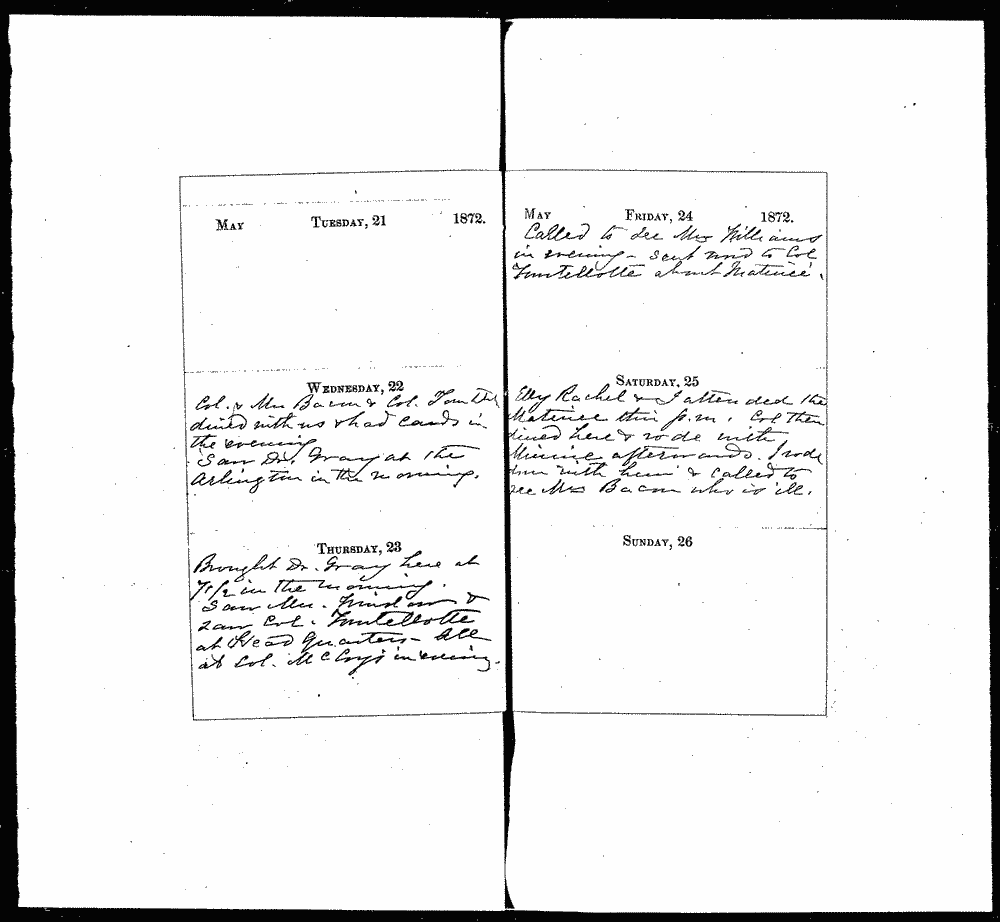 May Tuesday, 21 1872.
Wednesday, 22
Col. & Mrs Bacon & Col.
dined with us & had cards in
the evening
Saw Dr. Gray at the
Arlington in the morning.
Thursday, 23
Brought Dr. Gray here at
7 1/2 in the morning.
Saw Mrs. &
saw Col.
at Head Quarters - All
at Col. McCoy's in evening.
May Friday, 24 1872.
Called to see Mrs Williams
in evening - sent word to Col
about Matinée.
Saturday, 25
Elly Rachel & I attended the
Matinee this p.m. Col then
dined here & rode with
Minnie afterwards. I rode
down with him & called to
see Mrs Bacon who is ill.
Sunday, 26